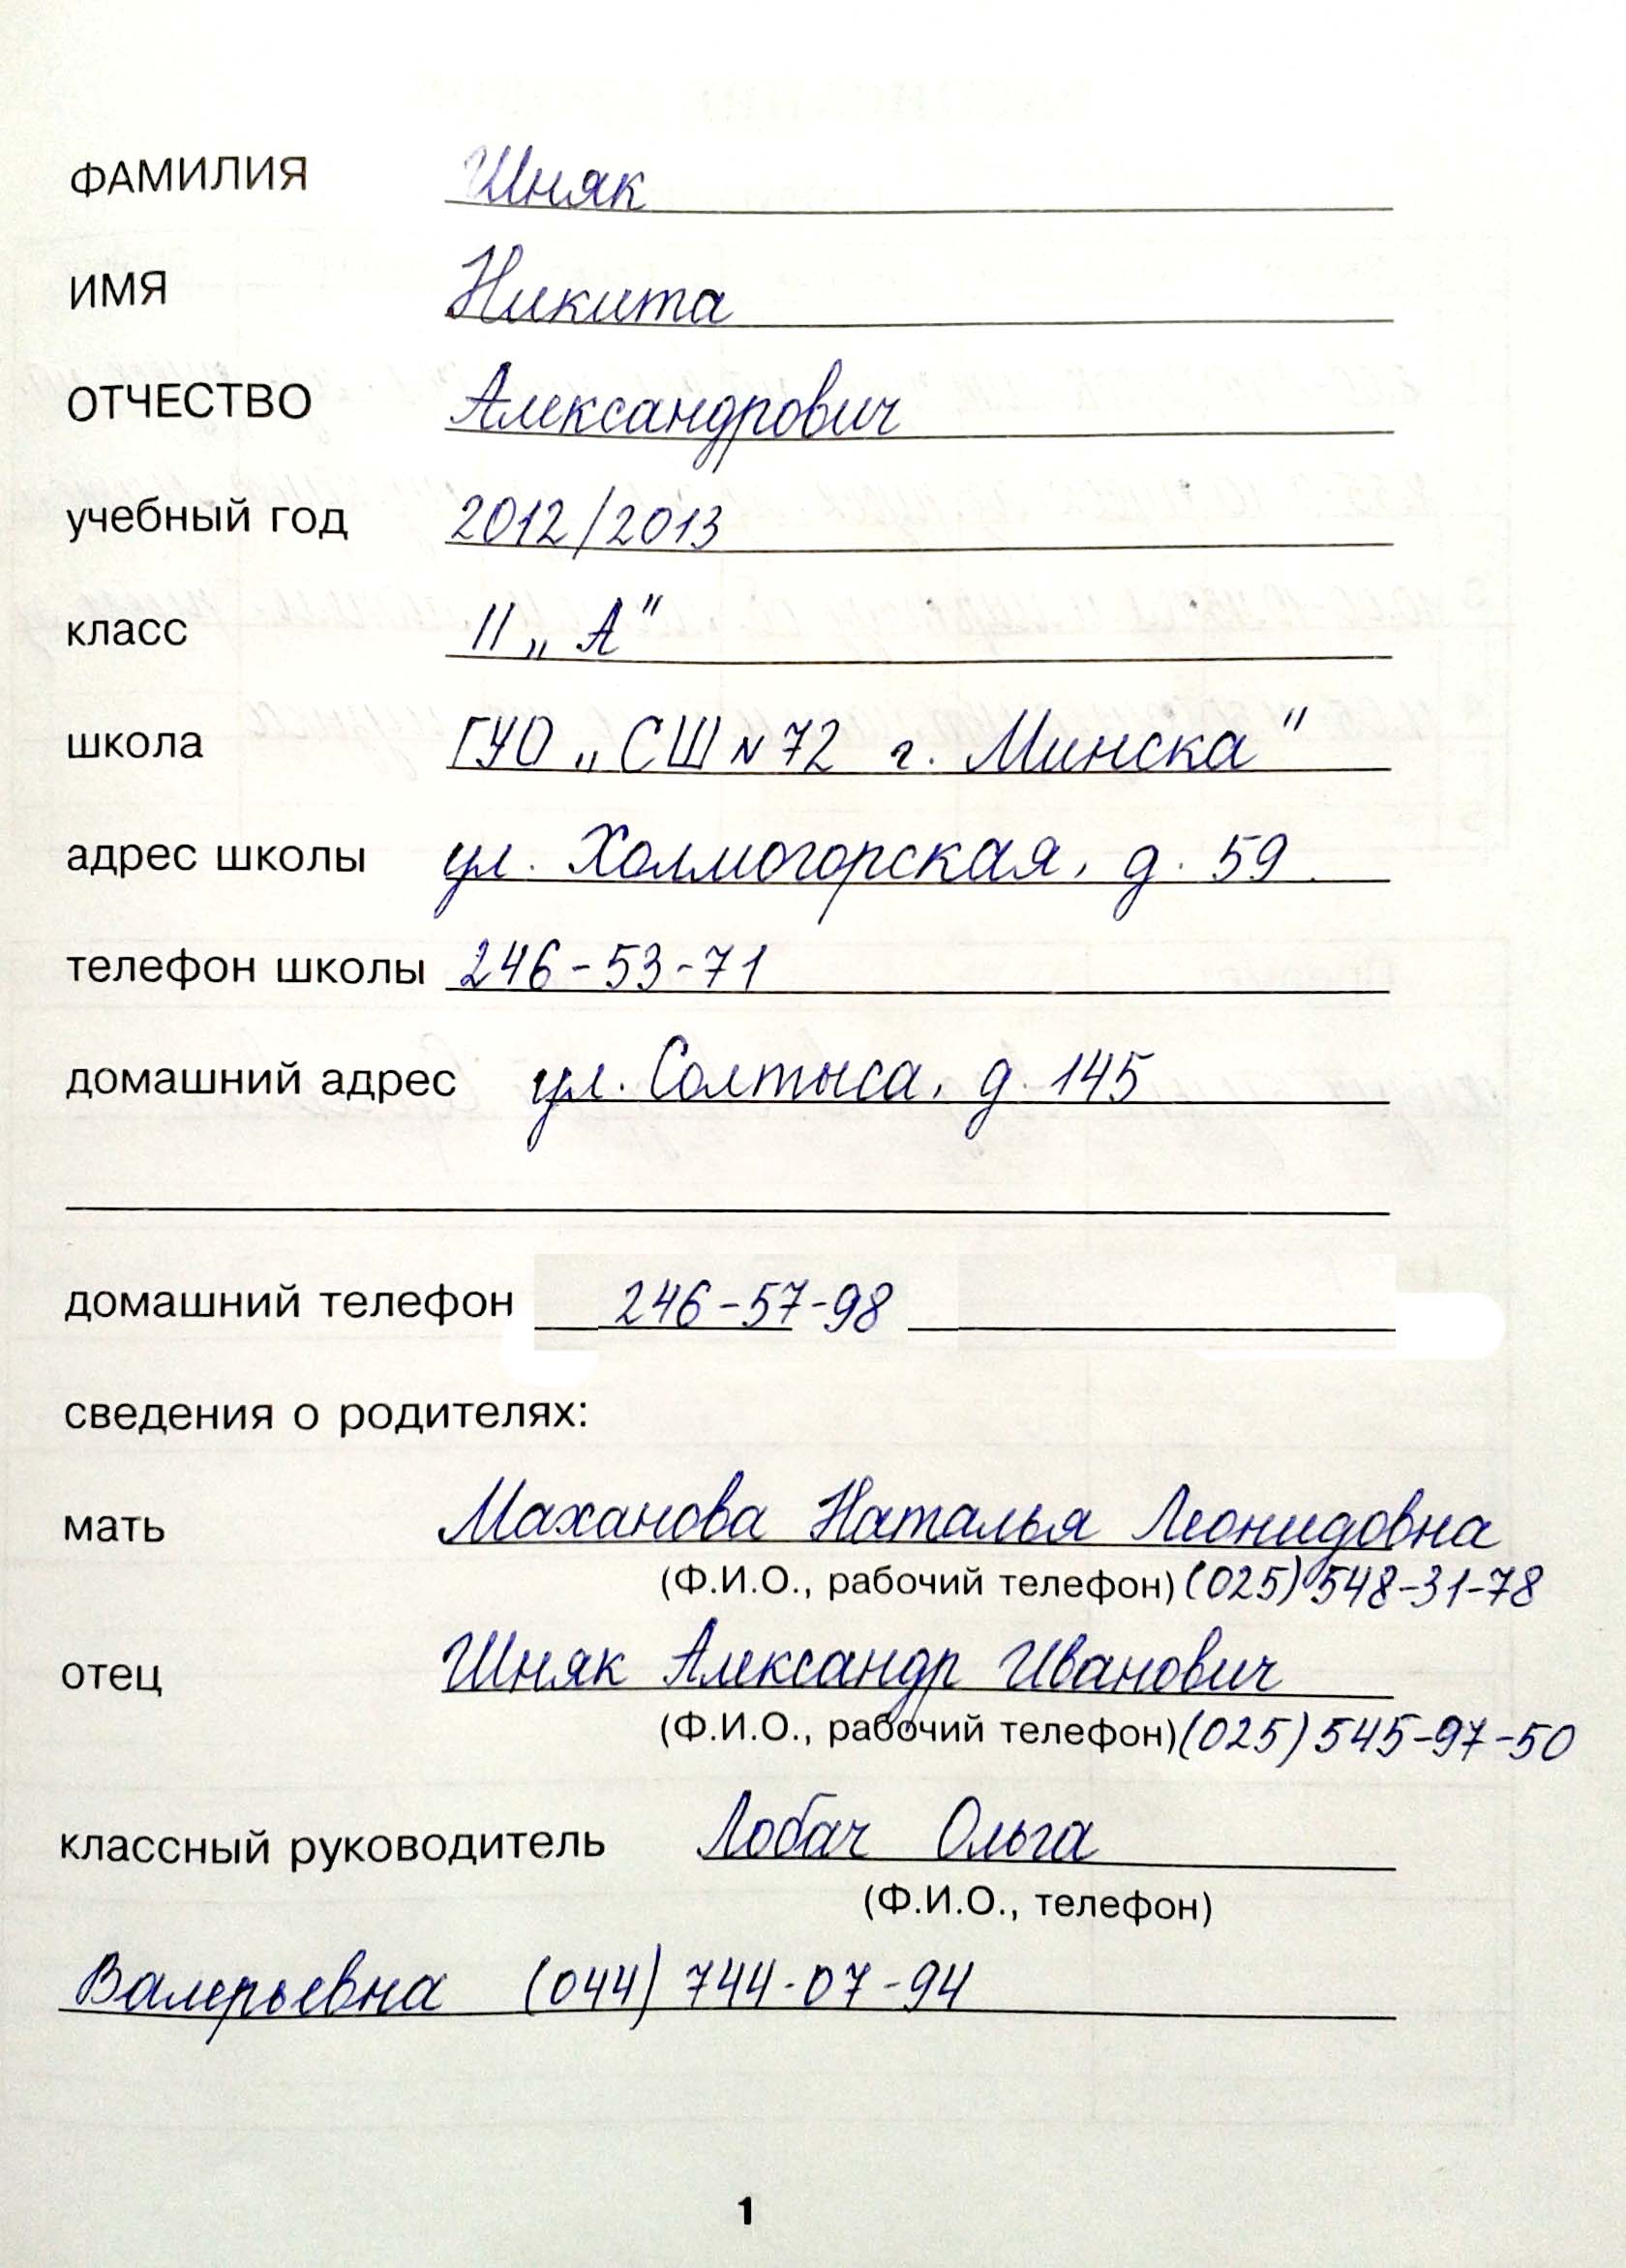 ФАМИЛИЯ Шняк
ИМЯ Никита
ОТЧЕСТВО Александрович
учебный год 2012/2013
класс II „А"
школа ГУО „СШ N 72 г. Минска"
адрес школы ул. Холмогорская, д. 59
телефон школы 246-53-71
домашний адрес ул. Солтыса, д. 145
домашний телефон 246-57-98
сведения о родителях:
мать Маханова Наталья Леонидовна
(Ф.И.О., рабочий телефон) (025) 548-31-78
отец Шняк Александр Иванович
(Ф.И.О., рабочий телефон) (025) 545-97-50
классный руководитель Лобач Ольга
(Ф.И.О., телефон)
Валерьевна (044) 744-07-94
1